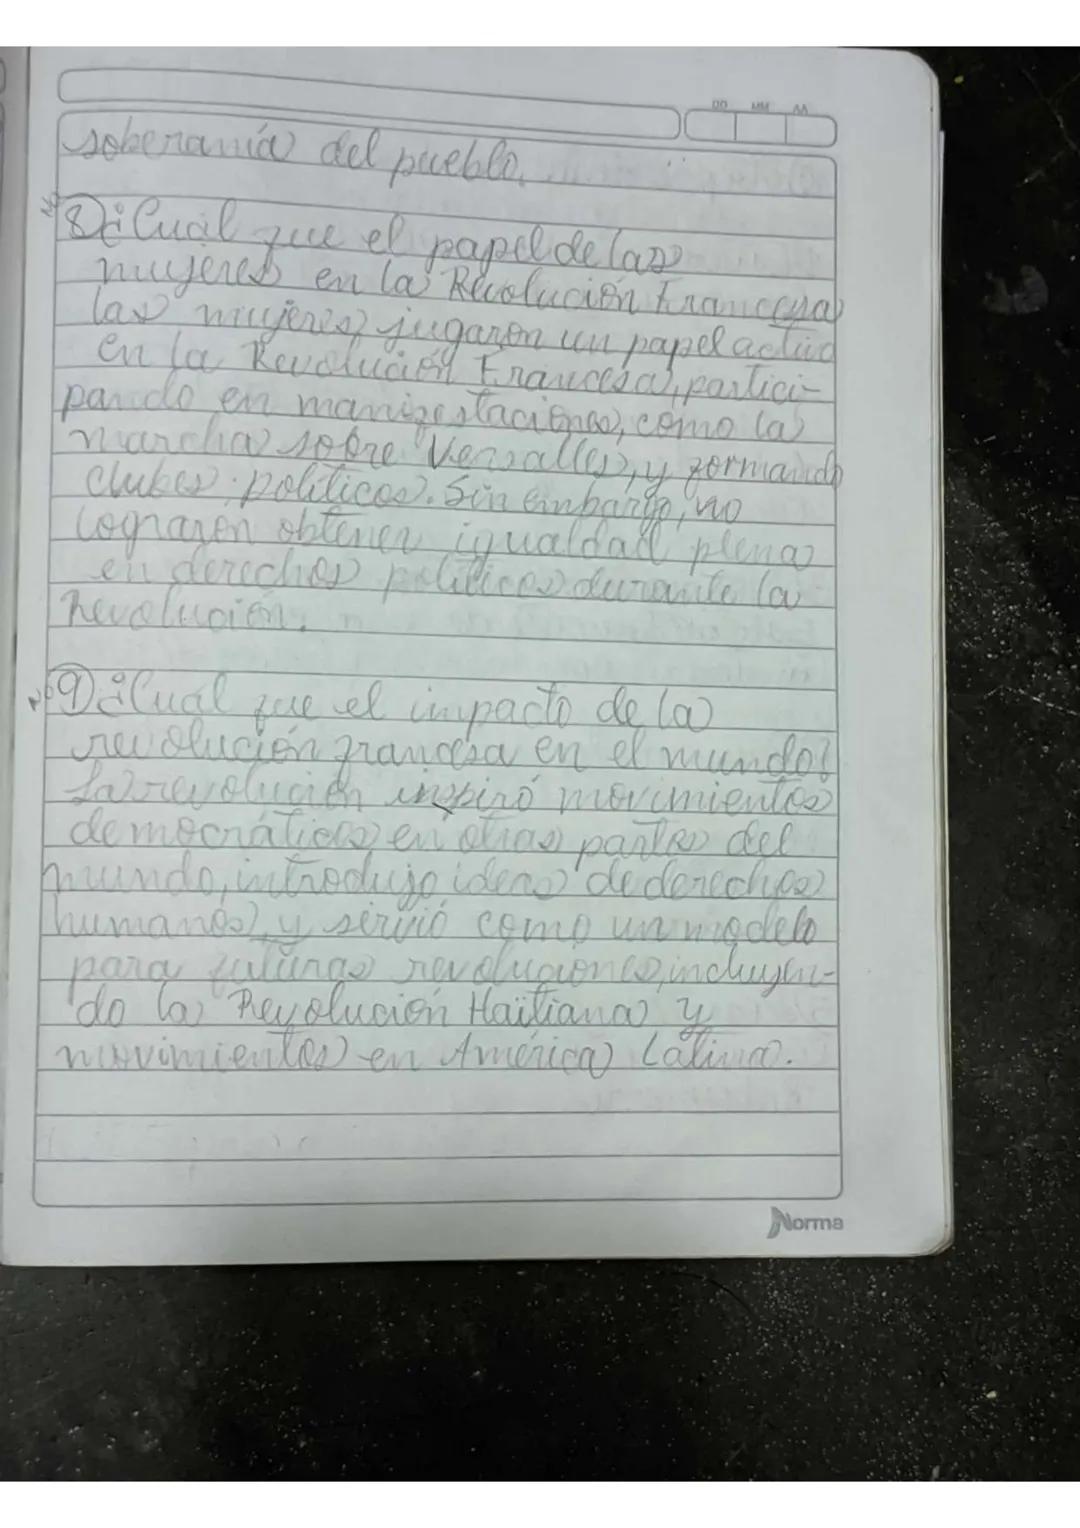 DD MM AA
soberanía del pueblo.
No
8) ¿Cuál fue el papel de las
mujeres en la Revolución Francesa
las mujeres jugaron un papel activo
en la Revolución Francesa, partici-
pando en manifestaciones, como la
marcha sobre Versalles, y formando
clubes políticos. Sin embargo, no
lograron obtener igualdad plena
en derechos políticos durante la
Revolución.
No
9) ¿Cuál fue el impacto de la
revolución francesa en el mundo?
La revolución inspiró movimientos
democráticos en otras partes del
mundo, introdujo ideas de derechos
humanos, y sirvió como un modelo
para futuras revoluciones, incluyen-
do la Revolución Haitiana y
movimientos en América Latina.
Norma